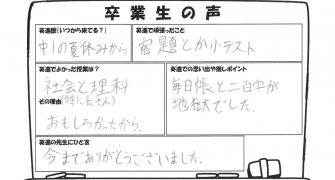 卒業生の声
英進歴(いつから来てる?)
中1の夏休みから
英進で頑張ったこと
宿題とか小テスト
英進でよかった授業は?
社会と理科
その理由(特に長さん)
おもしろかったから。
英進での思い出や推しポイント
毎日帳と二百中が
地獄でした。
英進の先生にひと言
今までありがとうございました。